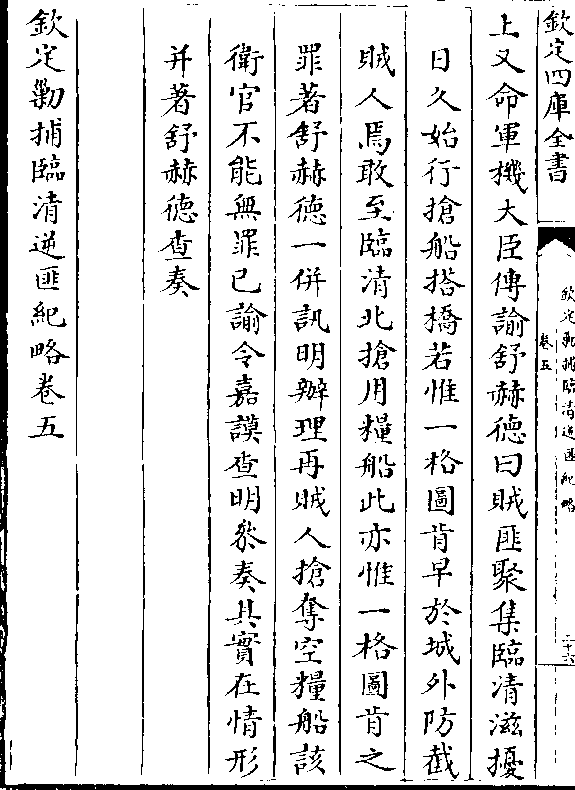 欽定四庫全書
欽定勦捕臨清逆匪紀略
卷五
二十六
上又命軍機大臣傳諭舒赫德曰賊匪聚集臨清滋擾
日久始行搶船搭橋若惟一格圖肯早於城外防截
賊人焉敢至臨清北搶用糧船此亦惟一格圖肯之
罪著舒赫德一併訊明辦理再賊人搶奪空糧船該
衛官不能無罪已諭令嘉謨查明叅奏其實在情形
并著舒赫德查奏
欽定勦捕臨清逆匪紀略卷五